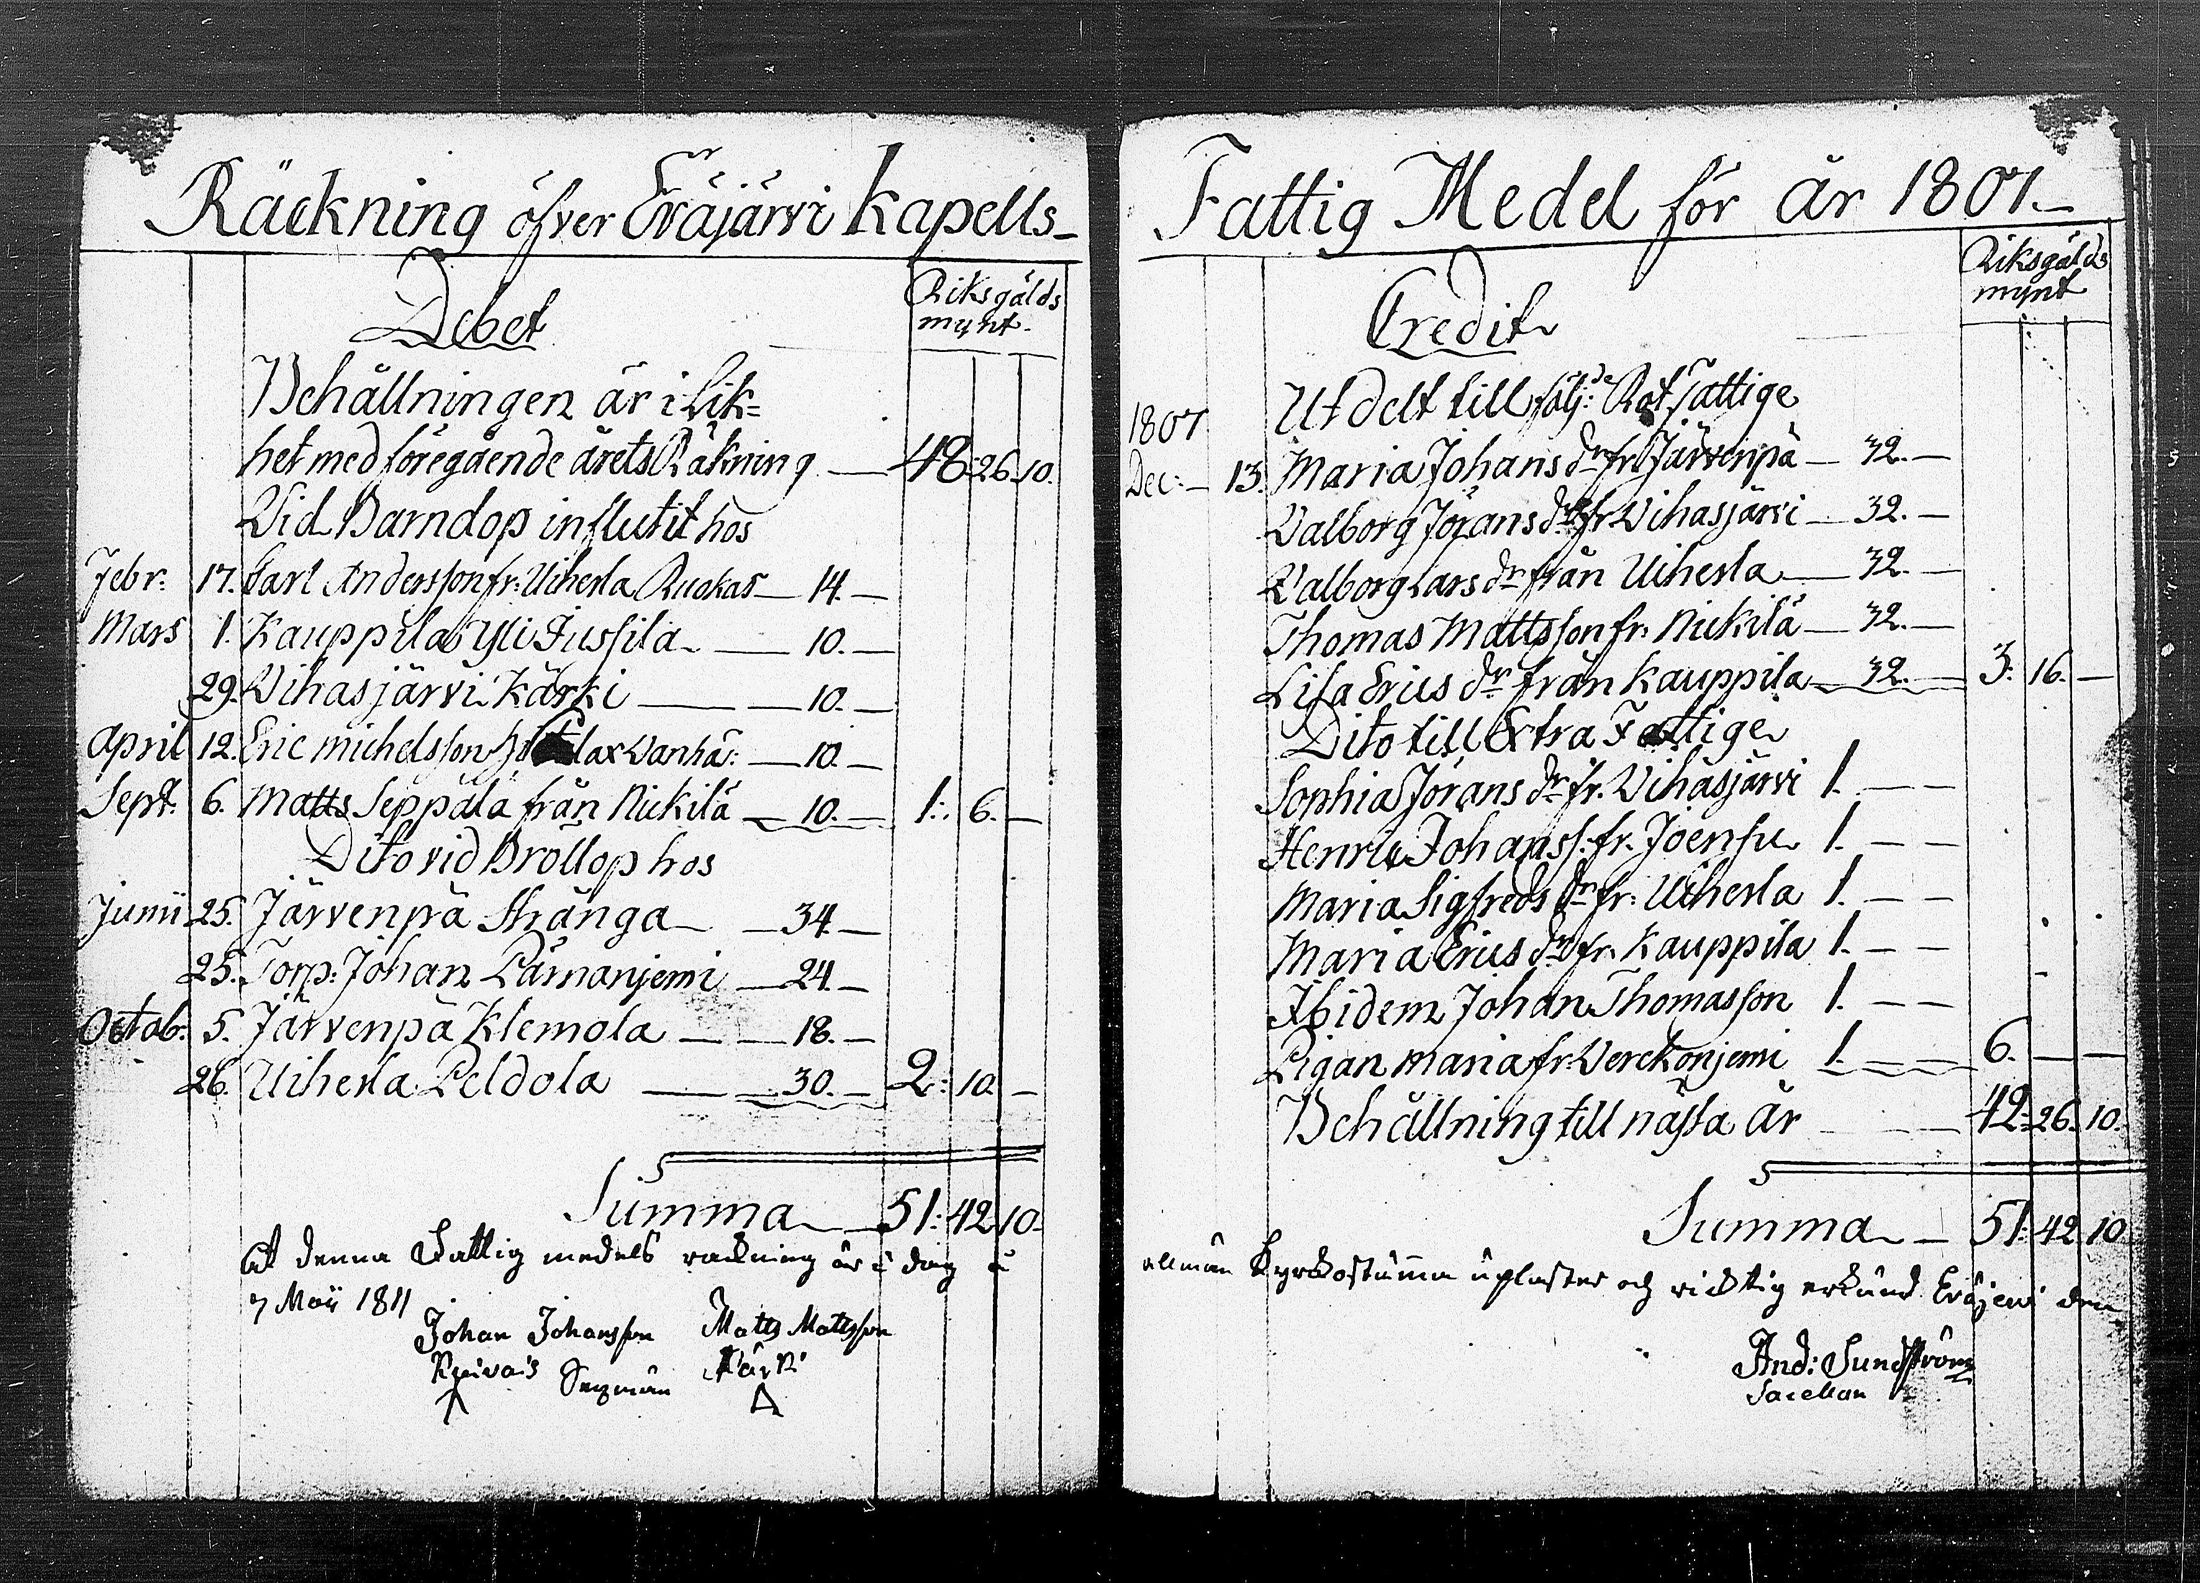 Räckning öfver Eräjärvi Kapells-
Debet
Riksgälds
mynt.
Behållningen är i Lik=
het med föregående årets Räkning — 48: 26. 10.
Vid Barndop influtit hos
Febr: 17. Carl Andersson fr: Uiherla Ruokas — 14. —
Mars 1. Kauppila Yli Jussila — 10. —
29. Vihasjärvi Kärki — 10. —
April 12. Eric Michelsson Vanhä: — 10. —
Sept: 6. Matts Seppälä från Nickilä — 10. — 1: 6. —
Dito vid Bröllop hos
Junii 25. Järvenpä Stränga — 34 —
25. Torp: Johan Lärnänjemi — 24. —
Octob: 5. Järvenpä Klemola — 18. —
26. Uiherla Peldola — 30. — 2: 10. —
Summa — 51: 42. 10.
At denna Fattig medels räckning är i dag i
7 Maij 1811
Johan Johansson Matts Mattsson
Sexmän Kärki
Fattig Medel för år 1807.—
Credit
Riksgälds
mynt
Utdelt till följ:de Rotfattige
1807
Dec: — 13. Maria Johans dr fr. Järvenpä — 32. —
Valborg Jörans dr fr. Vihasjärvi — 32. —
Valborg Lars dr från Uiherla — 32. —
Thomas Mattsson fr. Nickilä — 32. —
Lisa Erics dr från Kauppila — 32. — 3: 16. —
Dito till Extra Fattige
Sophia Jörans dr fr. Vihasjärvi 1. — —
Henric Johanss. fr. Joensu 1. — —
Maria Sigfreds dr fr: Uiherla 1. — —
Maria Erics dr fr. Kauppila 1. — —
Ibidem Johan Thomasson 1. — —
Pigan Maria fr. Verckonjemi 1. — — 6. — —
Behållning till nästa år — 42: 26. 10.
Summa — 51: 42. 10
allmän Kyrkostämma upläster och ricktig erkänd. Eräjervi den
And: Sundström
Sacellan